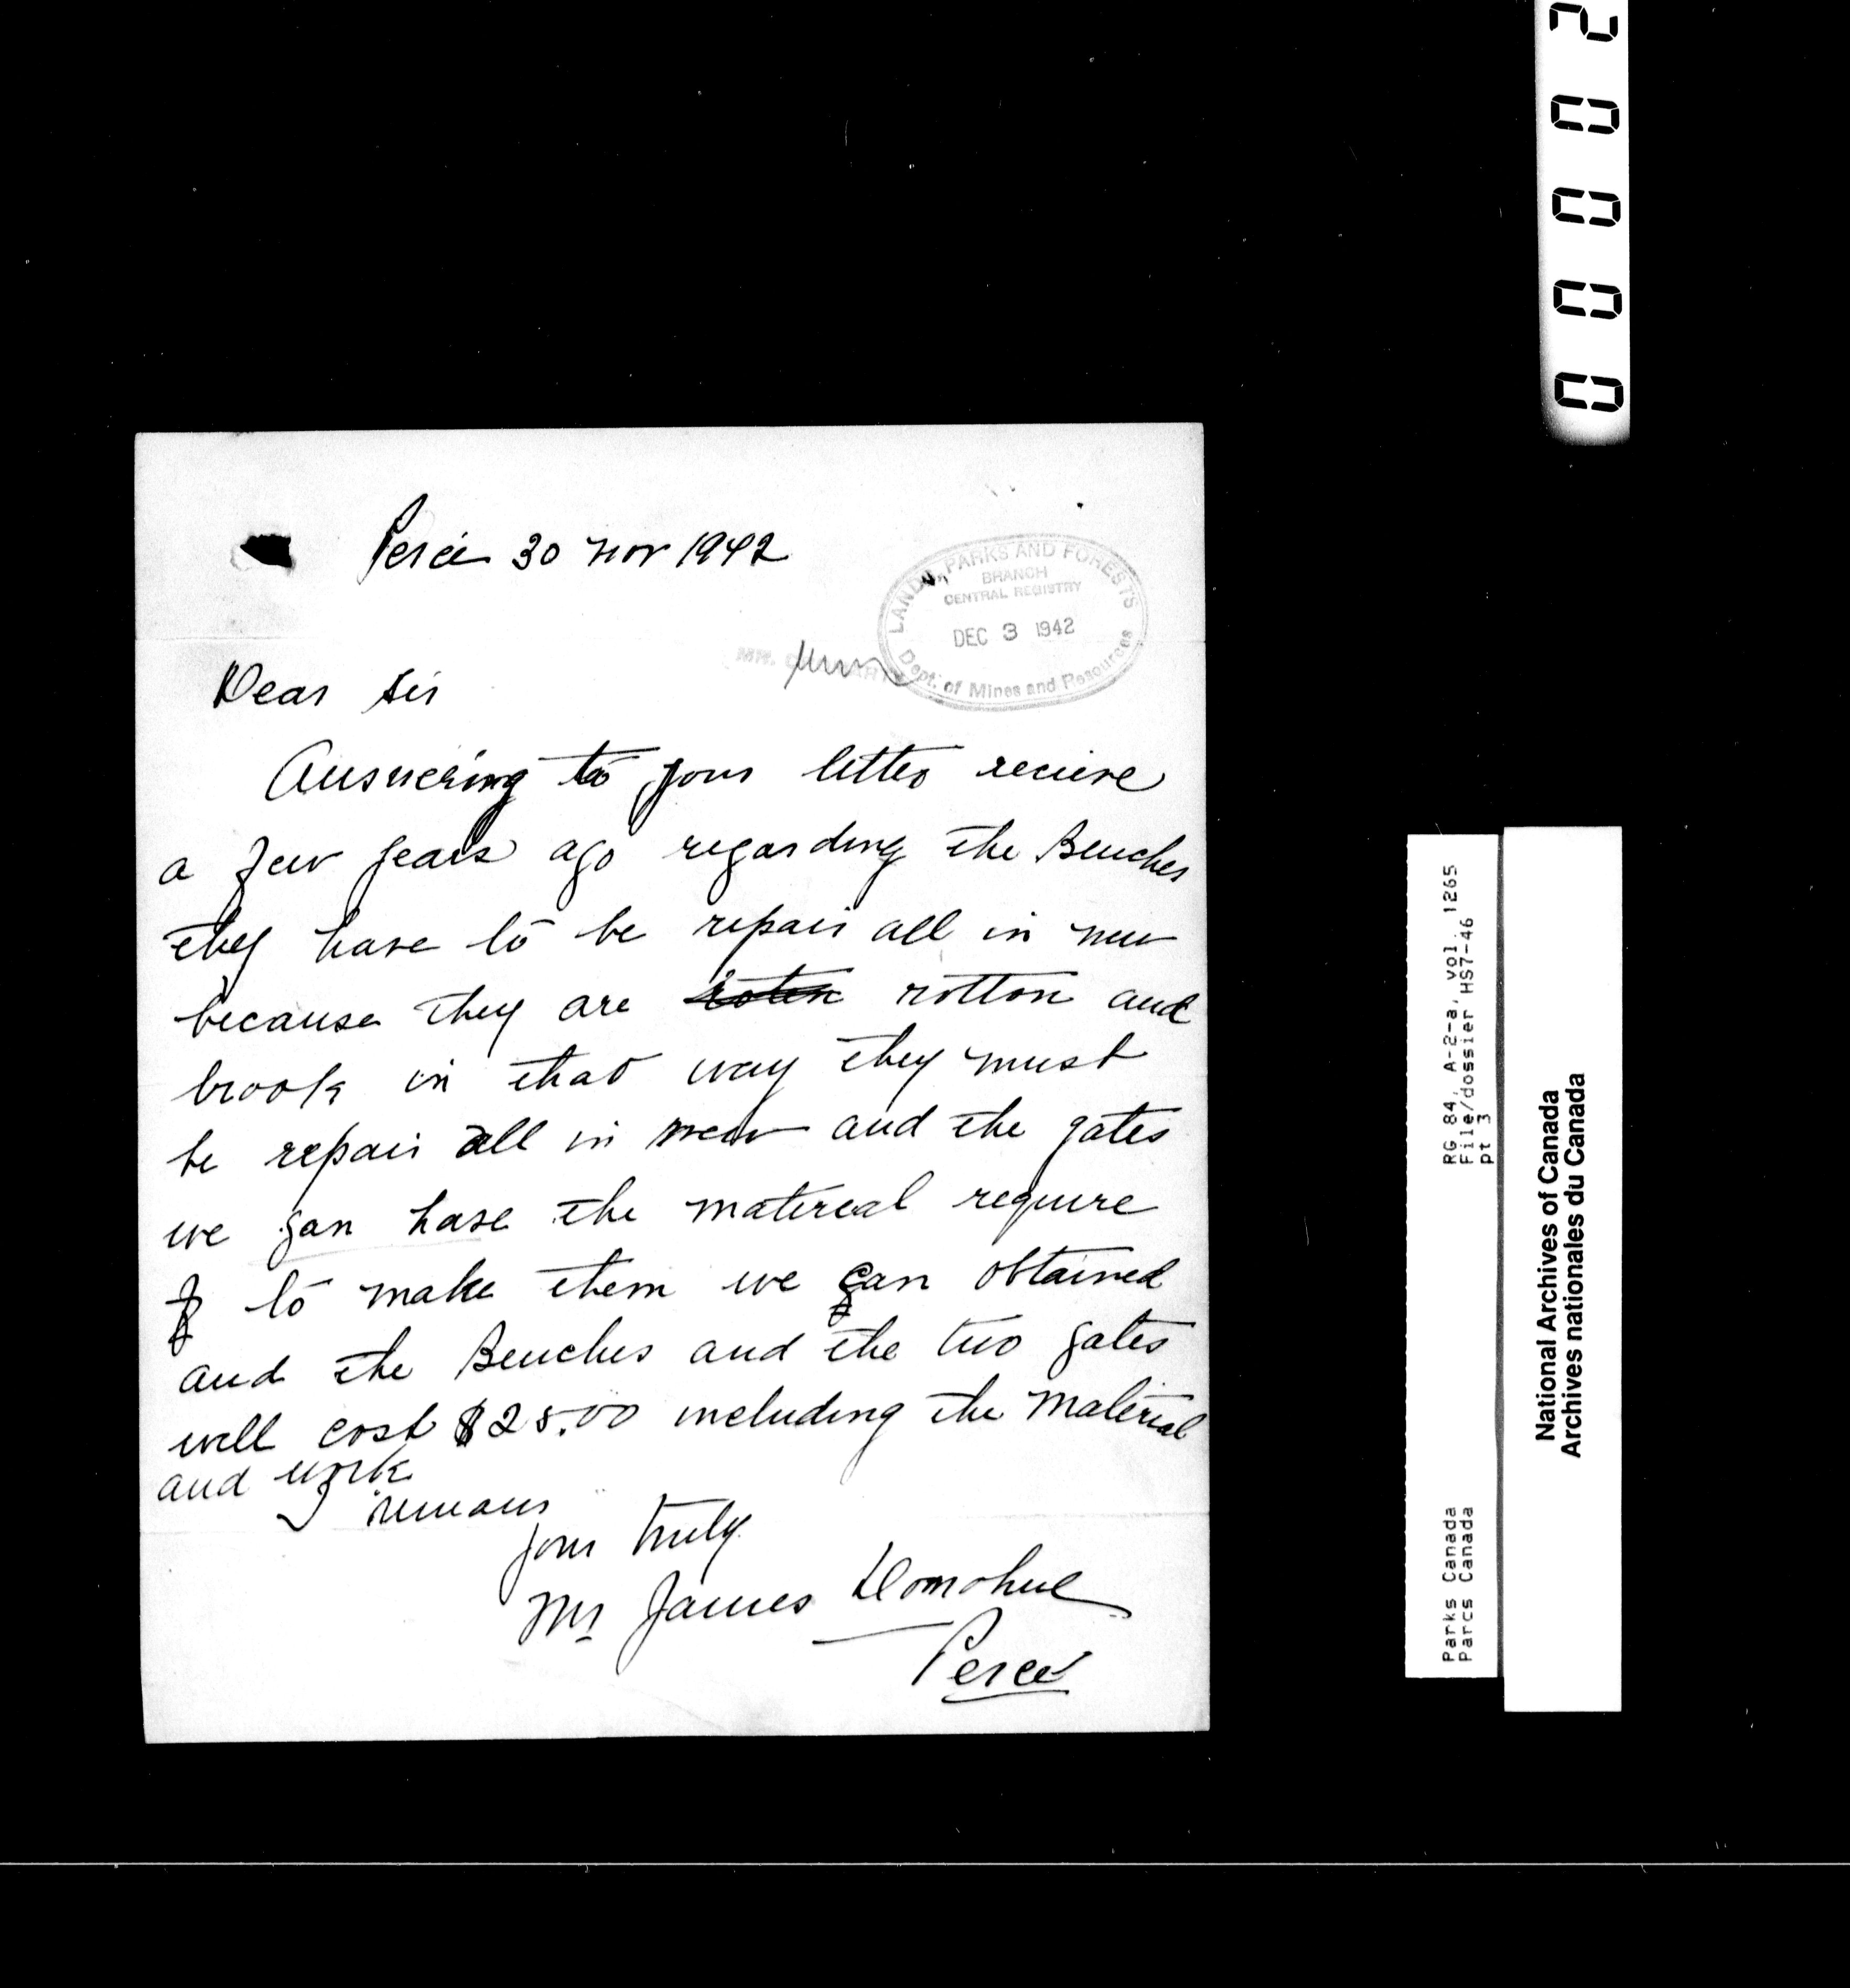 Percé 30 nov 1942
LANDS, PARKS AND FORESTS
BRANCH
CENTRAL REGISTRY
DEC 3 1942
Dept. of Mines and Resources
Dear Sir
Answering to your letter recieve
a few years ago regarding the Benches
they have to be repair all in new
because they are roten rotton and
brook in that way they must
be repair all in new and the gates
we can have the matereal require
to make them we can obtained
and the Benches and the two gates
will cost $25.00 including the Material
and work
I remains
your truly
Mr James Donohue
Percé
00002
RG 84, A-2-a, vol. 1265
File/dossier HS7-46
pt 3
Parks Canada
Parcs Canada
National Archives of Canada
Archives nationales du Canada